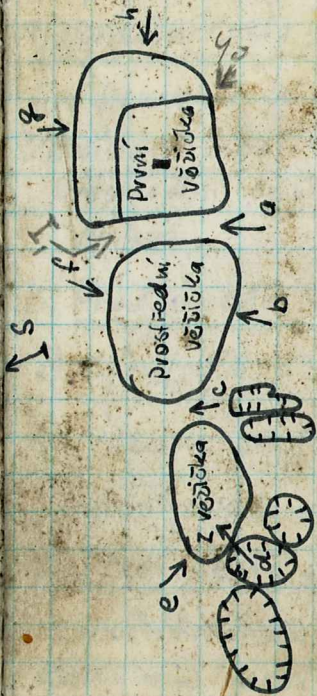 h
g
První
věžička
a
f
Prostřední
věžička
b
S
c
z věžička
d
e